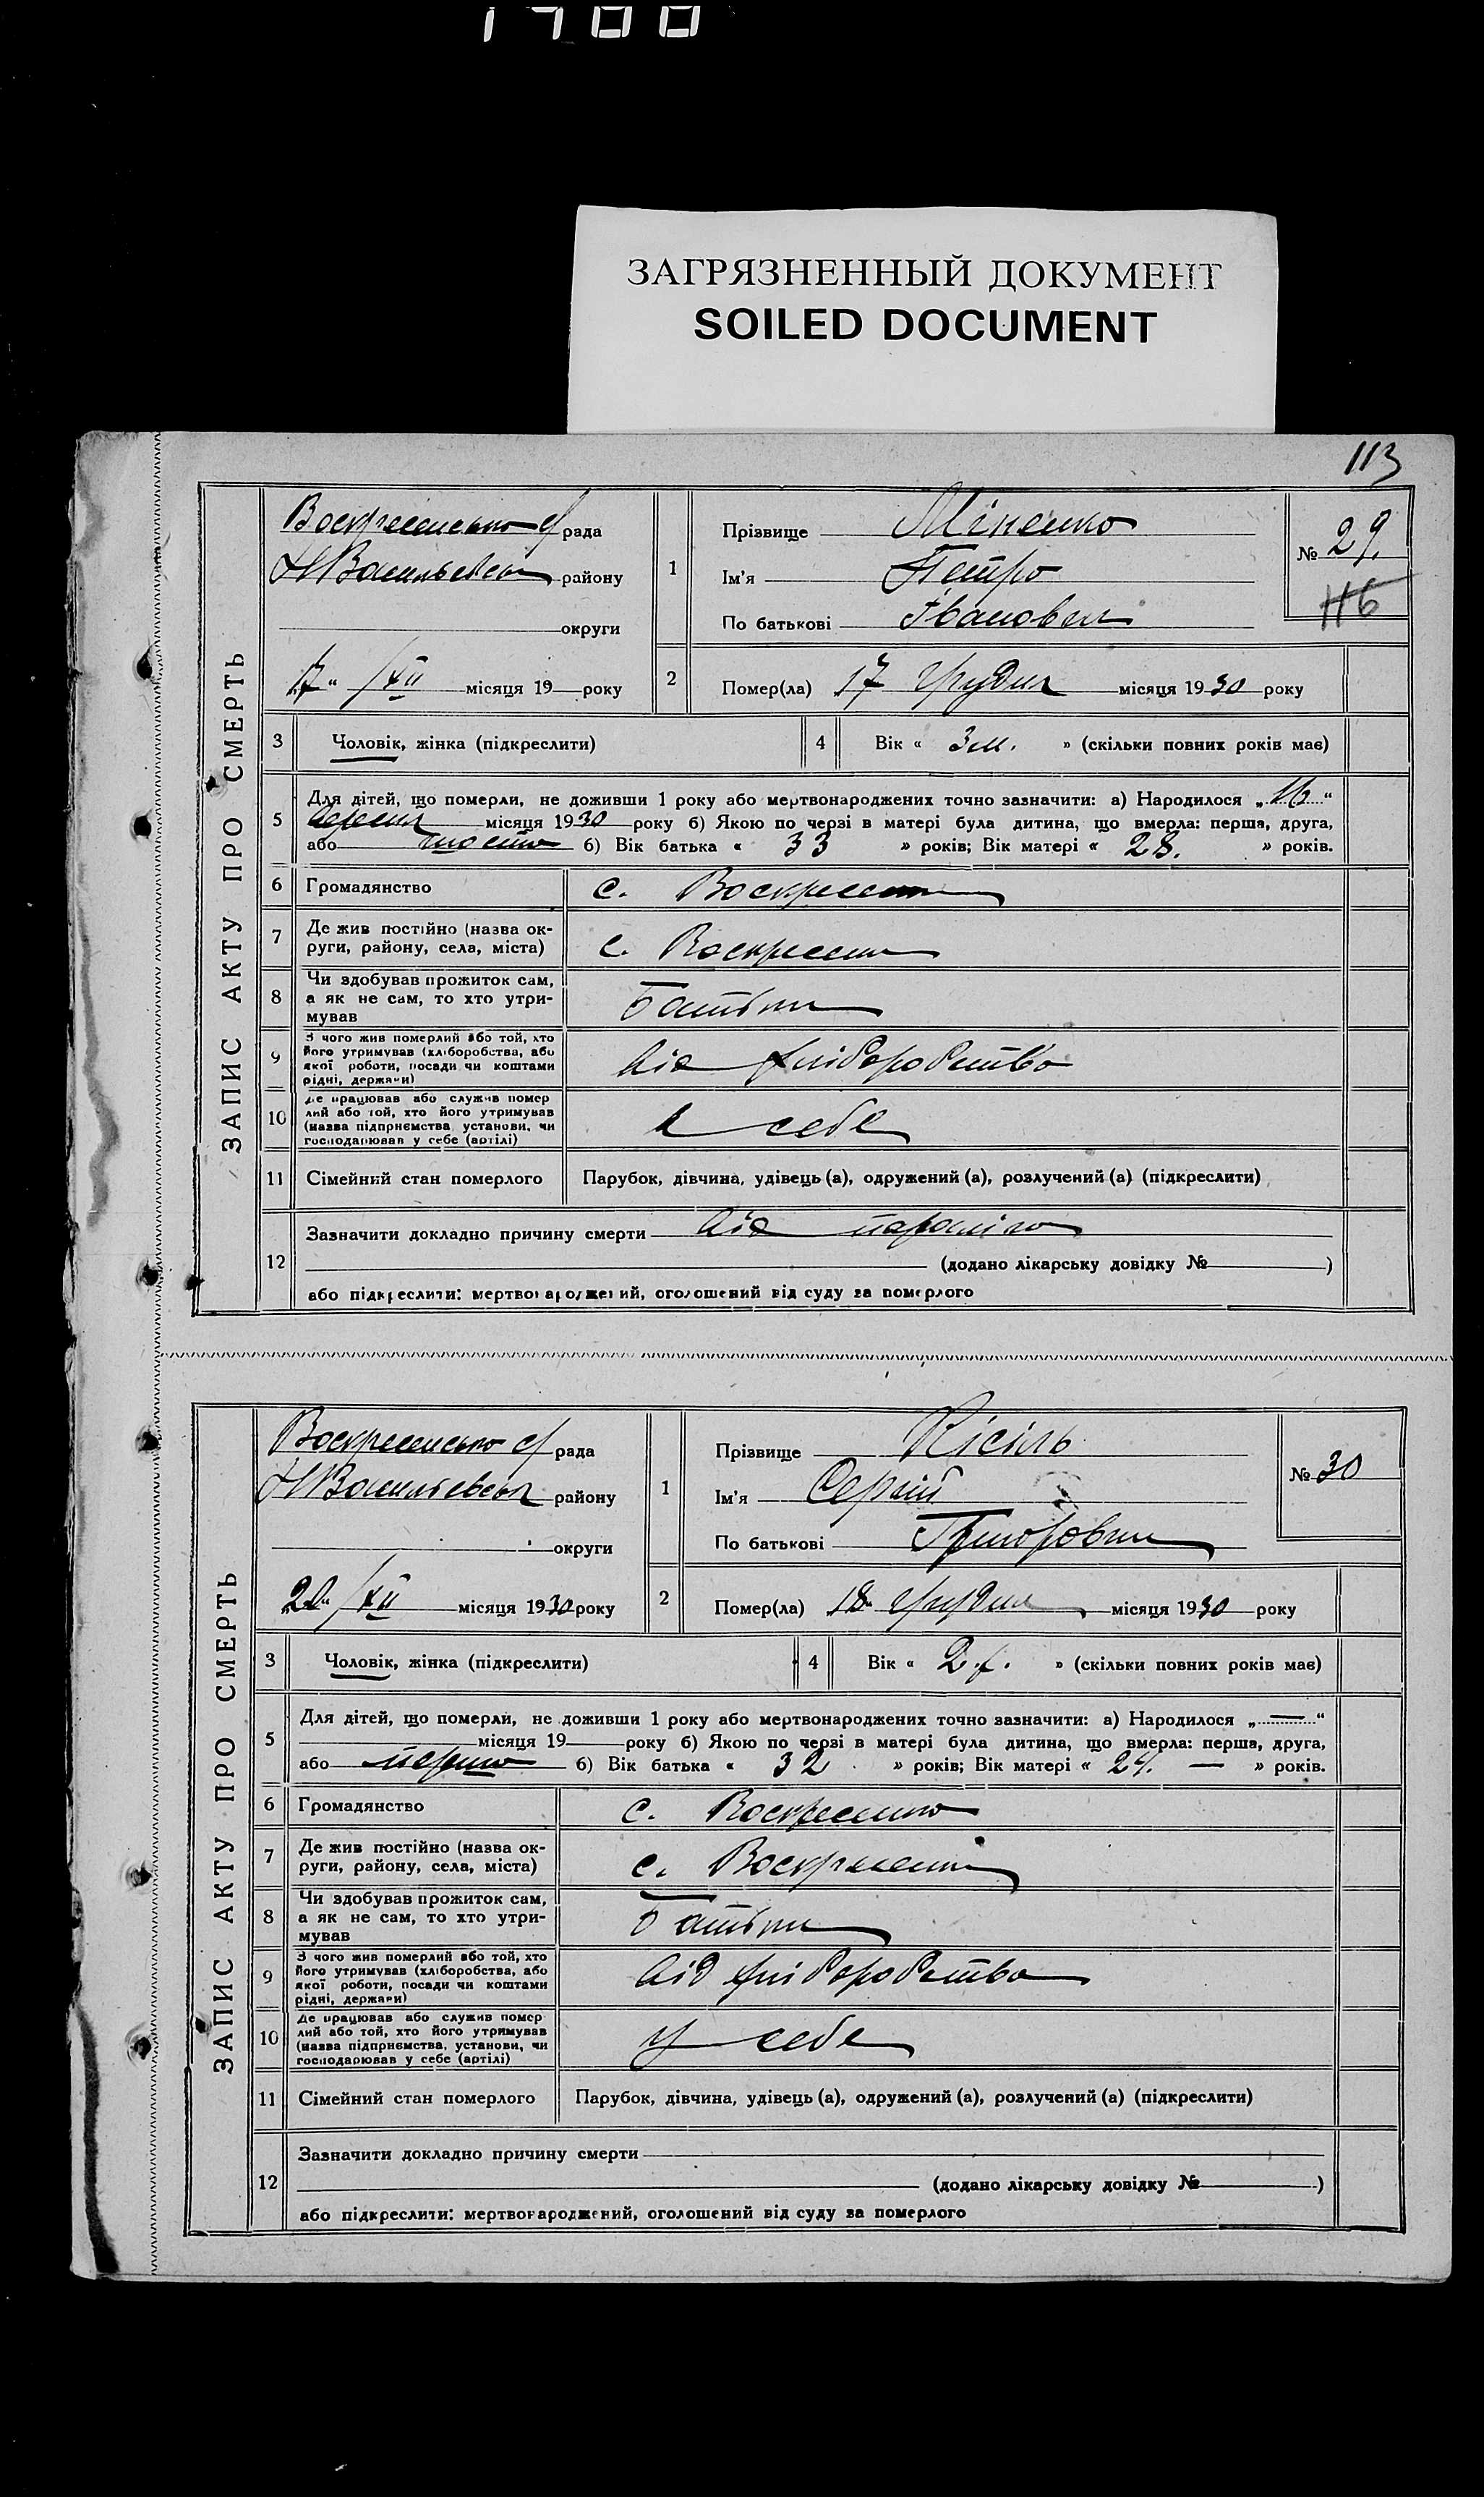 ЗАГРЯЗНЕННЫЙ ДОКУМЕНТ
SOILED DOCUMENT
113
ЗАПИС АКТУ ПРО СМЕРТЬ
рада
району
округи
17 " /XII місяця 19 року
1
Прізвище Міненко
Ім'я Петро
По батькові Іванович
№ 29.
116
2
Помер(ла) 17 грудня місяця 1930 року
3
Чоловік, жінка (підкреслити)
4
Вік « 3 м. » (скільки повних років має)
5
Для дітей, що померли, не доживши 1 року або мертвонароджених точно зазначити: а) Народилося „ 16 “
місяця 1930 року б) Якою по черзі в матері була дитина, що вмерла: перша, друга,
або шоста б) Вік батька « 33 » років; Вік матері « 28. » років.
6
Громадянство
с.
7
Де жив постійно (назва ок-
руги, району, села, міста)
с.
8
Чи здобував прожиток сам,
а як не сам, то хто утри-
мував
Батьки
9
З чого жив померлий або той, хто
його утримував (хліборобства, або
якої роботи, посади чи коштами
рідні, держави)
Від хліборобства
10
Де працював або служив помер
лий або той, хто його утримував
(назва підприємства, установи, чи
господарював у себе (артілі)
у себе
11
Сімейний стан померлого
Парубок, дівчина, удівець (а), одружений (а), розлучений (а) (підкреслити)
12
Зазначити докладно причину смерти Від
(додано лікарську довідку № )
або підкреслити: мертвонароджений, оголошений від суду за померлого
ЗАПИС АКТУ ПРО СМЕРТЬ
рада
району
округи
/XII місяця 1930 року
1
Прізвище Кісіль
Ім'я Сергій
По батькові Григорович
№ 30
2
Помер(ла) 18 грудня місяця 1930 року
3
Чоловік, жінка (підкреслити)
4
Вік « 2 р. » (скільки повних років має)
5
Для дітей, що померли, не доживши 1 року або мертвонароджених точно зазначити: а) Народилося „ — “
місяця 19 року б) Якою по черзі в матері була дитина, що вмерла: перша, друга,
або перша б) Вік батька « 32 » років; Вік матері « — » років.
6
Громадянство
с.
7
Де жив постійно (назва ок-
руги, району, села, міста)
с.
8
Чи здобував прожиток сам,
а як не сам, то хто утри-
мував
Батьки
9
З чого жив померлий або той, хто
його утримував (хліборобства, або
якої роботи, посади чи коштами
рідні, держави)
Від хліборобства
10
Де працював або служив помер
лий або той, хто його утримував
(назва підприємства, установи, чи
господарював у себе (артілі)
у себе
11
Сімейний стан померлого
Парубок, дівчина, удівець (а), одружений (а), розлучений (а) (підкреслити)
12
Зазначити докладно причину смерти
(додано лікарську довідку № )
або підкреслити: мертвонароджений, оголошений від суду за померлого